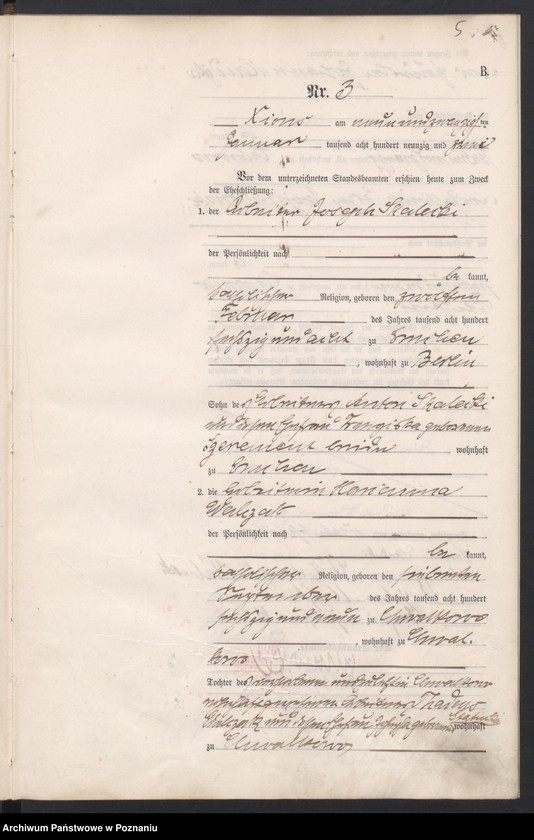 5.
B.
Nr. 3
Xions am neunundzwanzigsten
Januar tausend acht hundert neunzig und zwei
Vor dem unterzeichneten Standesbeamten erschien heute zum Zweck
der Eheschließung:
1. der Arbeiter Joseph Skalecki
der Persönlichkeit nach
be kannt,
katholischer Religion, geboren den zwölften
Februar des Jahres tausend acht hundert
sechszig und acht zu
, wohnhaft zu Berlin
Sohn des Arbeiters Anton Skalecki
und dessen Ehefrau Franziska geborenen
beide wohnhaft
zu
2. die Arbeiterin Marianna
Walczak
der Persönlichkeit nach
be kannt,
katholischer Religion, geboren den siebenten
September des Jahres tausend acht hundert
sechszig und neun zu Chwalkowo
, wohnhaft zu Chwal-
kowo
Tochter des verstorbenen und zuletzt in Chwalkowo
wohnhaft gewesenen Arbeiters
Walczak und dessen Ehefrau geborenen wohnhaft
zu Chwalkowo
Archiwum Państwowe w Poznaniu